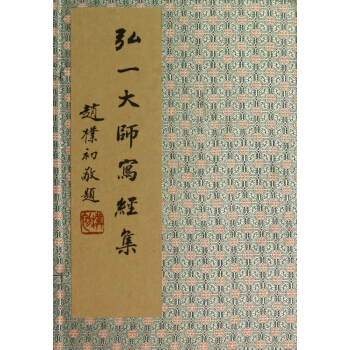 弘一大師寫經集
趙樸初敬題